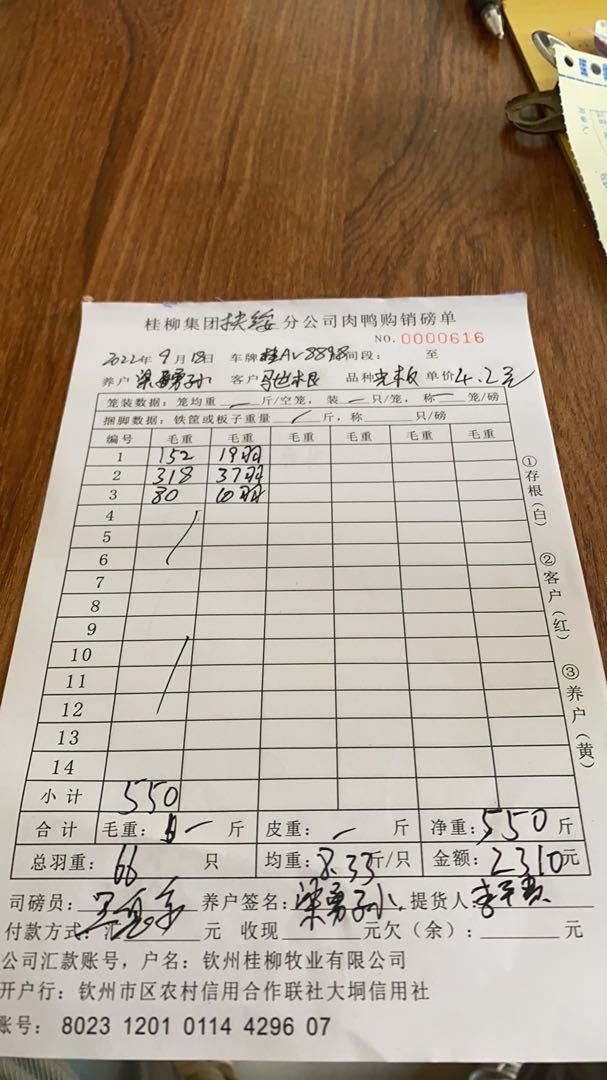 桂柳集团扶绥分公司肉鸭购销磅单
NO.0000616
2022年9月18日 车牌桂AV889 间段： 至
养户 梁勇子小 客户 马世根 品种 光板 单价4.2元
笼装数据：笼均重 一 斤/空笼，装 一 只/笼，称 一 笼/磅
捆脚数据：铁筐或板子重量 / 斤，称 只/磅
编号 毛重 毛重 毛重 毛重 毛重 毛重
1 152 19羽
2 318 37羽
3 80 10羽
4
5
6
7
8
9
10
11
12
13
14
小计 550
合计 毛重： 一 斤 皮重： 一 斤 净重：550斤
总羽重：66 只 均重：8.33斤/只 金额：2310元
司磅员： 养户签名：梁勇子小 提货人
付款方式：汇 元 收现 元欠（余）： 元
公司汇款账号，户名：钦州桂柳牧业有限公司
开户行：钦州市区农村信用合作联社大垌信用社
账号： 8023 1201 0114 4296 07
①存根（白）
②客户（红）
③养户（黄）